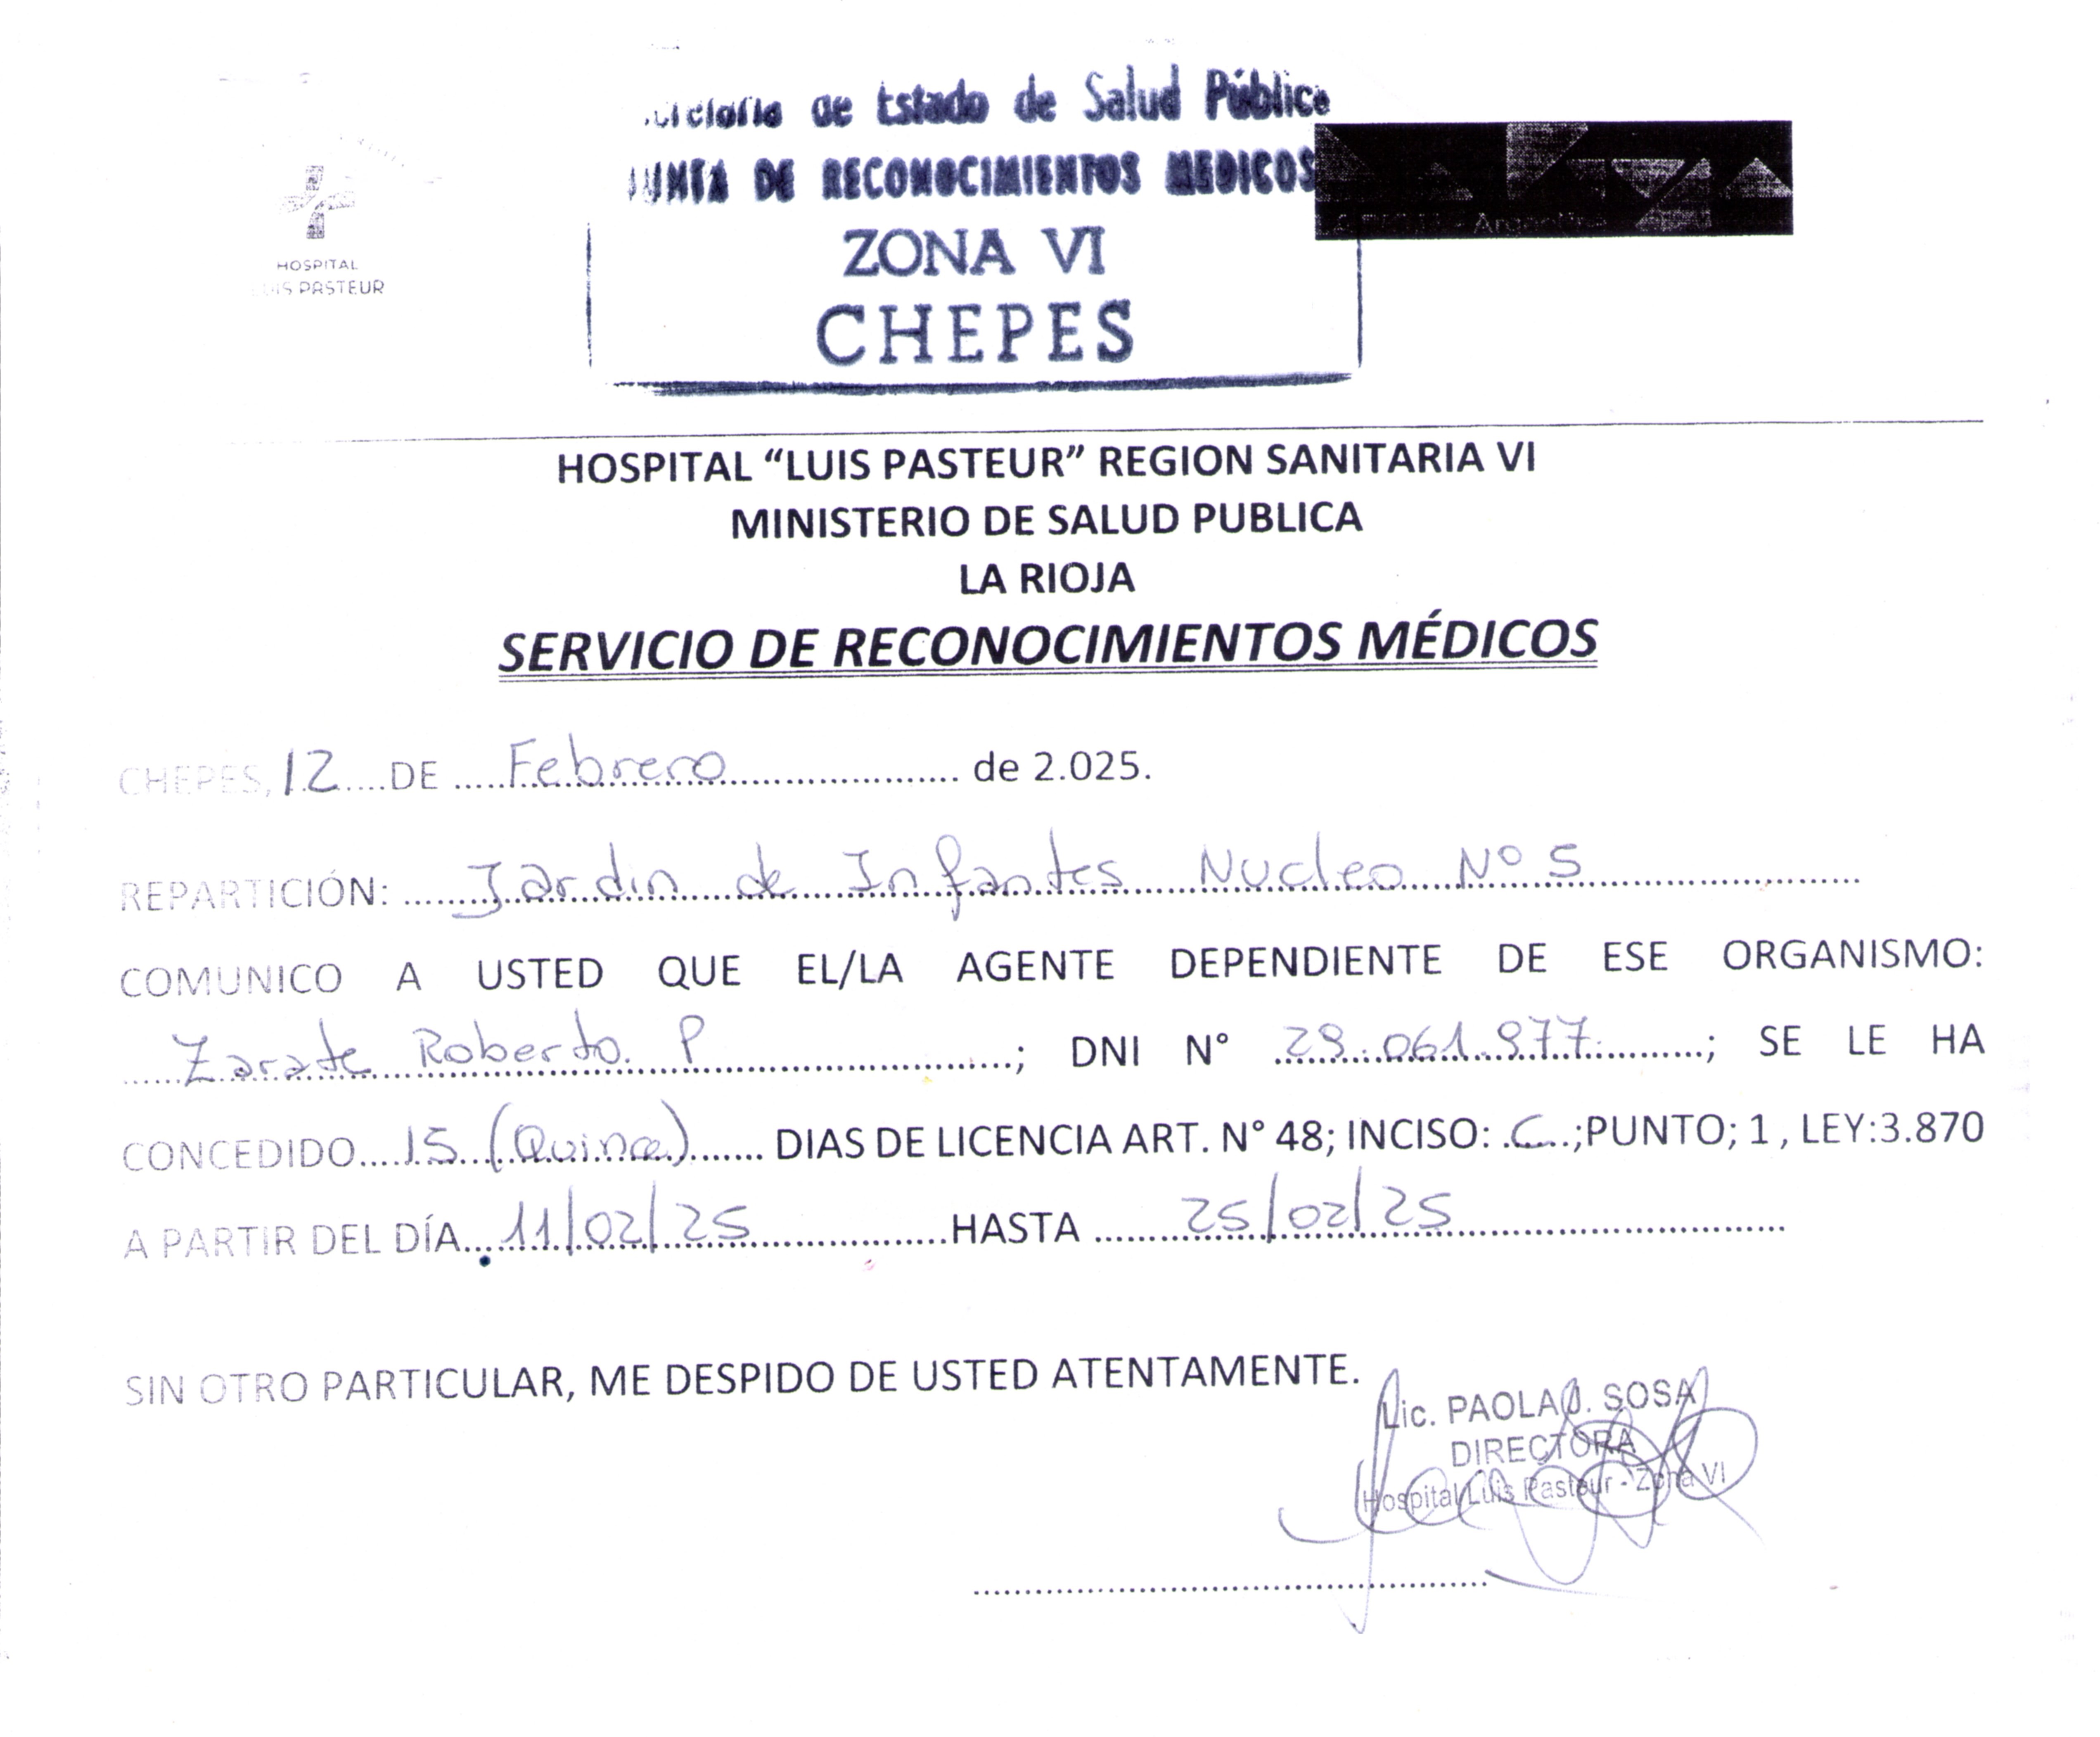 de Estado de Salud Pública
JUNTA DE RECONOCIMIENTOS MEDICOS
ZONA VI
CHEPES
HOSPITAL
LUIS PASTEUR
Argentina
HOSPITAL “LUIS PASTEUR” REGION SANITARIA VI
MINISTERIO DE SALUD PUBLICA
LA RIOJA
SERVICIO DE RECONOCIMIENTOS MÉDICOS
CHEPES, 12 DE Febrero de 2.025.
REPARTICIÓN: Jardin de Infantes Nucleo Nº 5
COMUNICO A USTED QUE EL/LA AGENTE DEPENDIENTE DE ESE ORGANISMO:
Zarate Roberto. P ; DNI N° ; SE LE HA
CONCEDIDO 15 (Quince) DIAS DE LICENCIA ART. N° 48; INCISO: C ;PUNTO; 1, LEY:3.870
A PARTIR DEL DÍA 11/02/25 HASTA 25/02/25
SIN OTRO PARTICULAR, ME DESPIDO DE USTED ATENTAMENTE.
Lic. PAOLA J. SOSA
DIRECTORA
Hospital Luis Pasteur - Zona VI